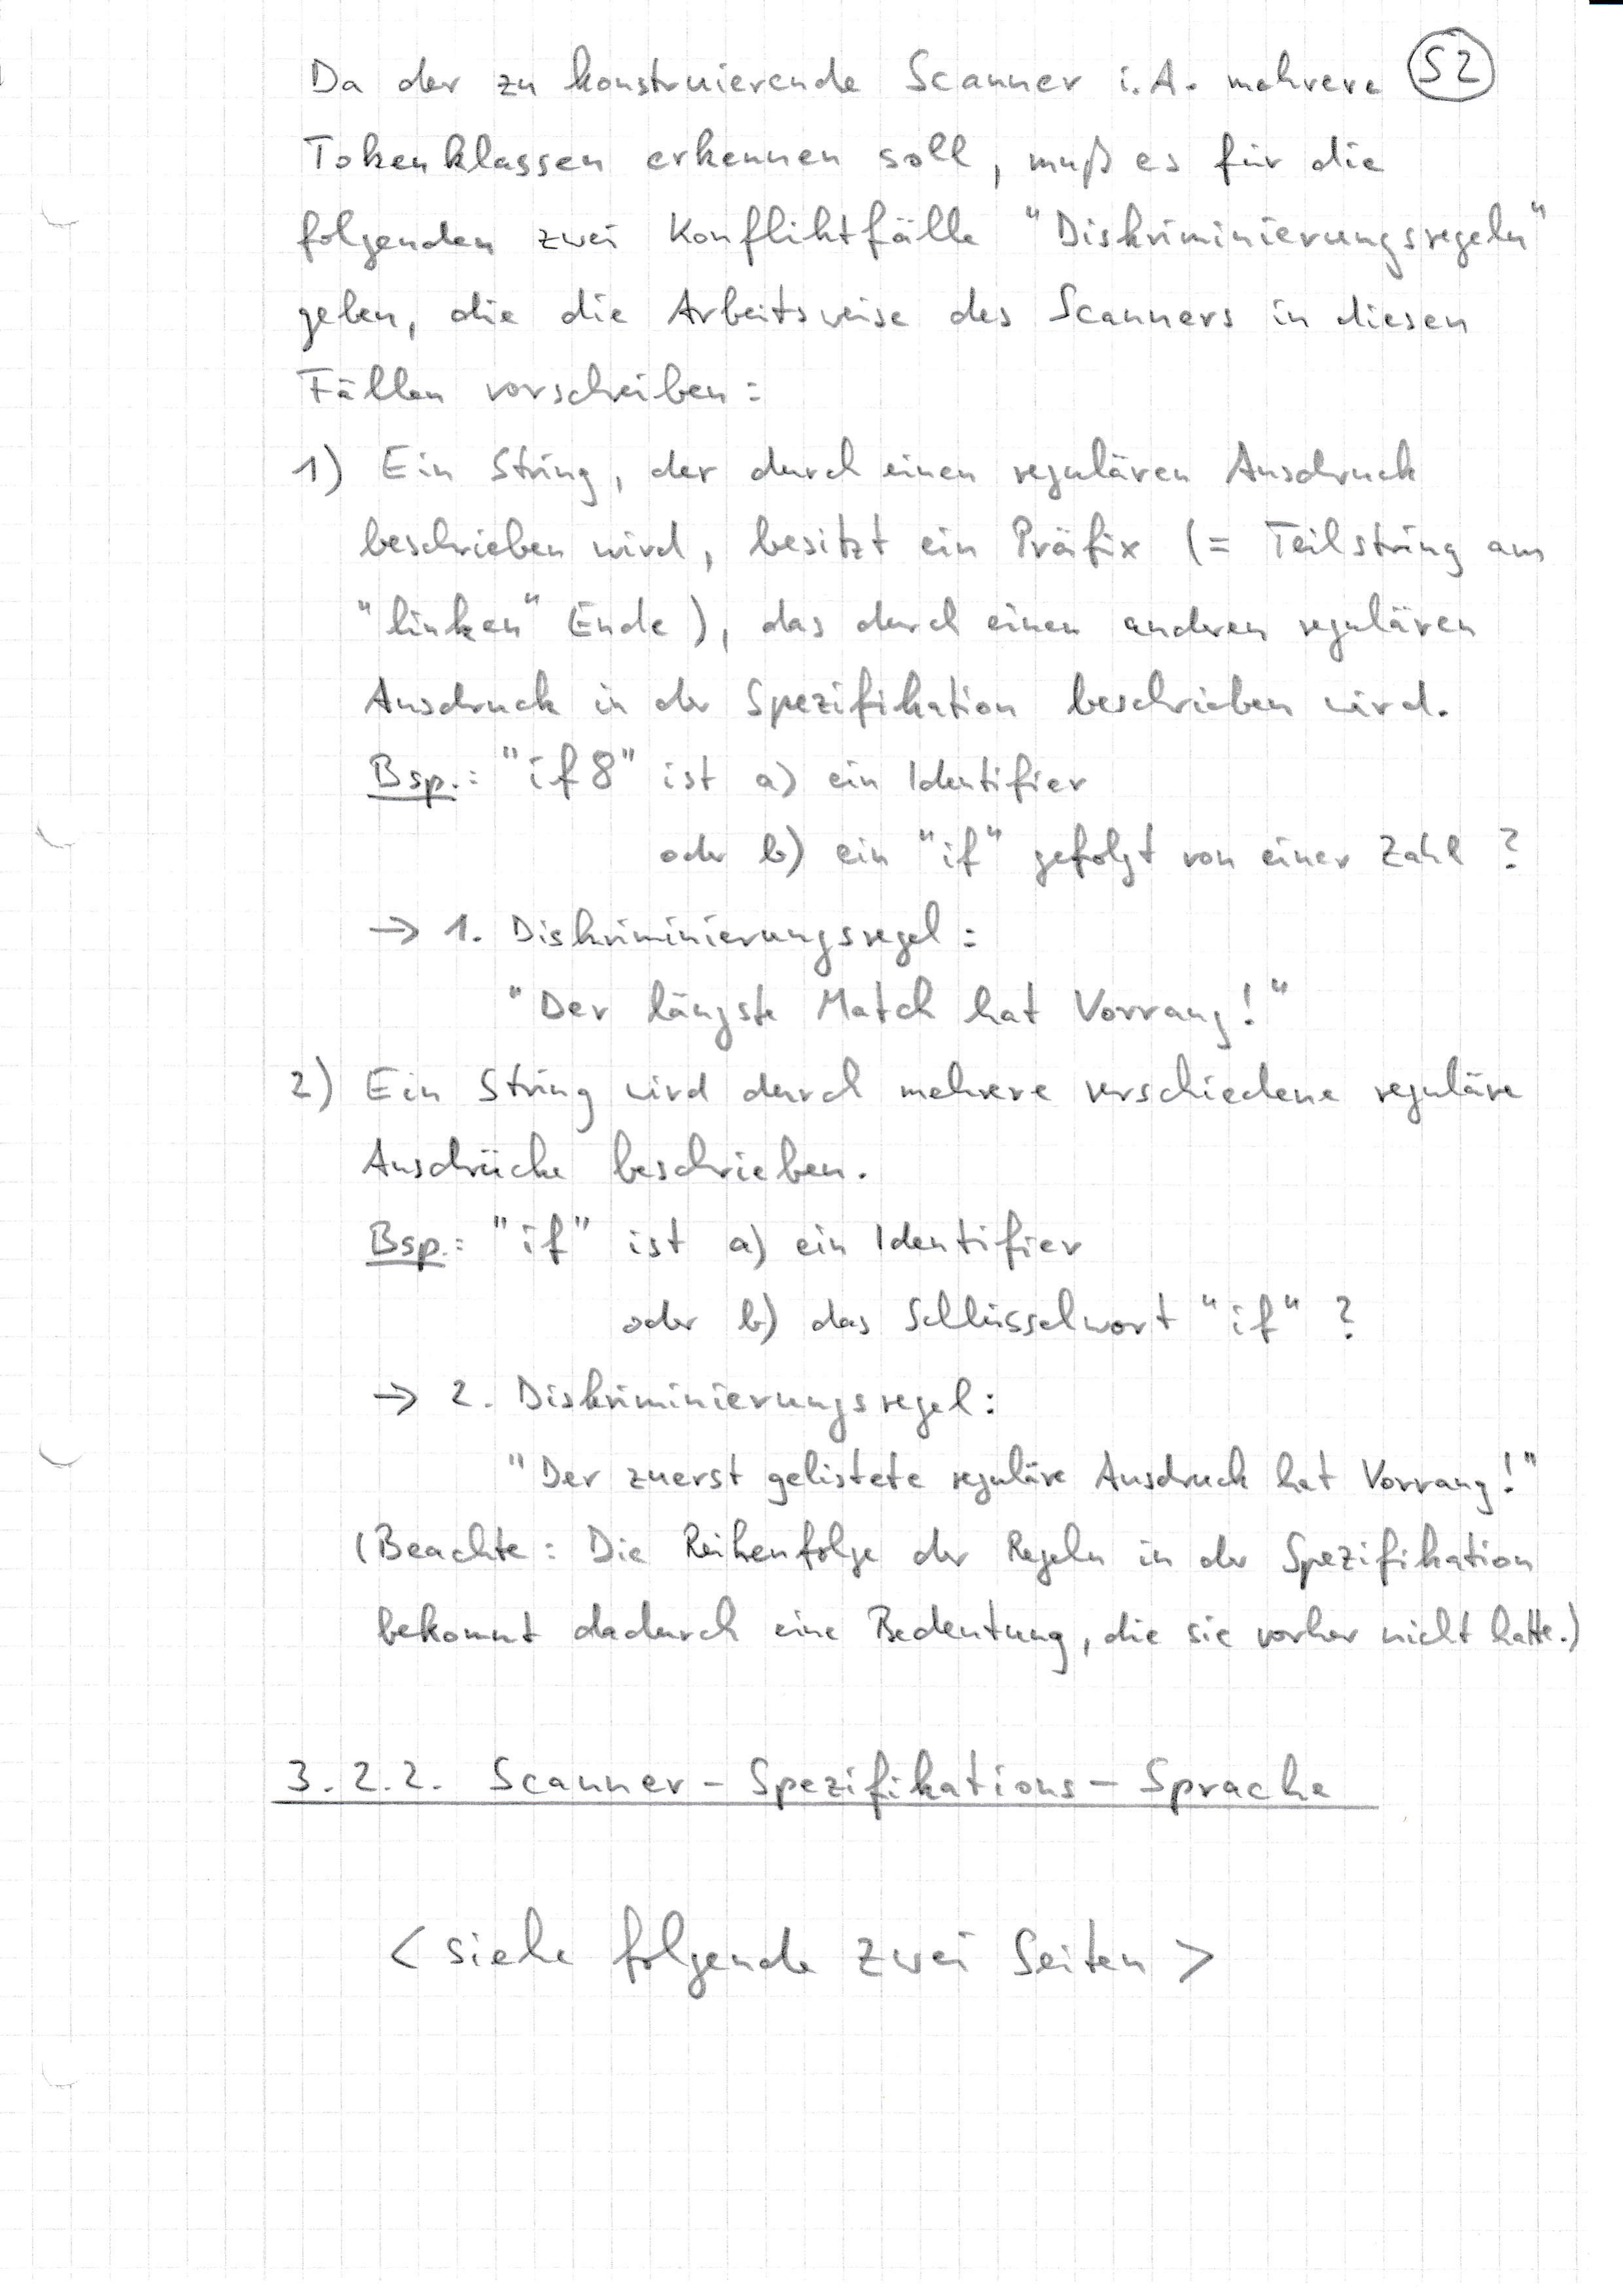 Da der zu konstruierende Scanner i.A. mehrere 52
Tokenklassen erkennen soll, muß es für die
folgenden zwei Konfliktfälle "Diskriminierungsregeln"
geben, die die Arbeitsweise des Scanners in diesen
Fällen vorschreiben:
1) Ein String, der durch einen regulären Ausdruck
beschrieben wird, besitzt ein Präfix (= Teilstring am
"linken" Ende), das durch einen anderen regulären
Ausdruck in der Spezifikation beschrieben wird.
Bsp.: "if8" ist a) ein Identifier
oder b) ein "if" gefolgt von einer Zahl ?
→ 1. Diskriminierungsregel:
"Der längste Match hat Vorrang!"
2) Ein String wird durch mehrere verschiedene reguläre
Ausdrücke beschrieben.
Bsp.: "if" ist a) ein Identifier
oder b) das Schlüsselwort "if" ?
→ 2. Diskriminierungsregel:
"Der zuerst gelistete reguläre Ausdruck hat Vorrang!"
(Beachte: Die Reihenfolge der Regeln in der Spezifikation
bekommt dadurch eine Bedeutung, die sie vorher nicht hatte.)
3.2.2. Scanner-Spezifikations-Sprache
<siehe folgende zwei Seiten>